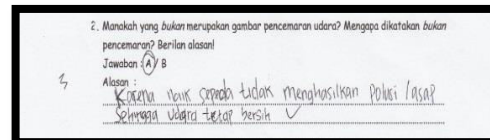 2. Manakah yang bukan merupakan gambar pencemaran udara? Mengapa dikatakan bukan
pencemaran? Berilan alasan!
Jawaban : A / B
3 Alasan :
Karena naik sepeda tidak menghasilkan Polusi / asap
Sehingga udara tetap bersih ✓